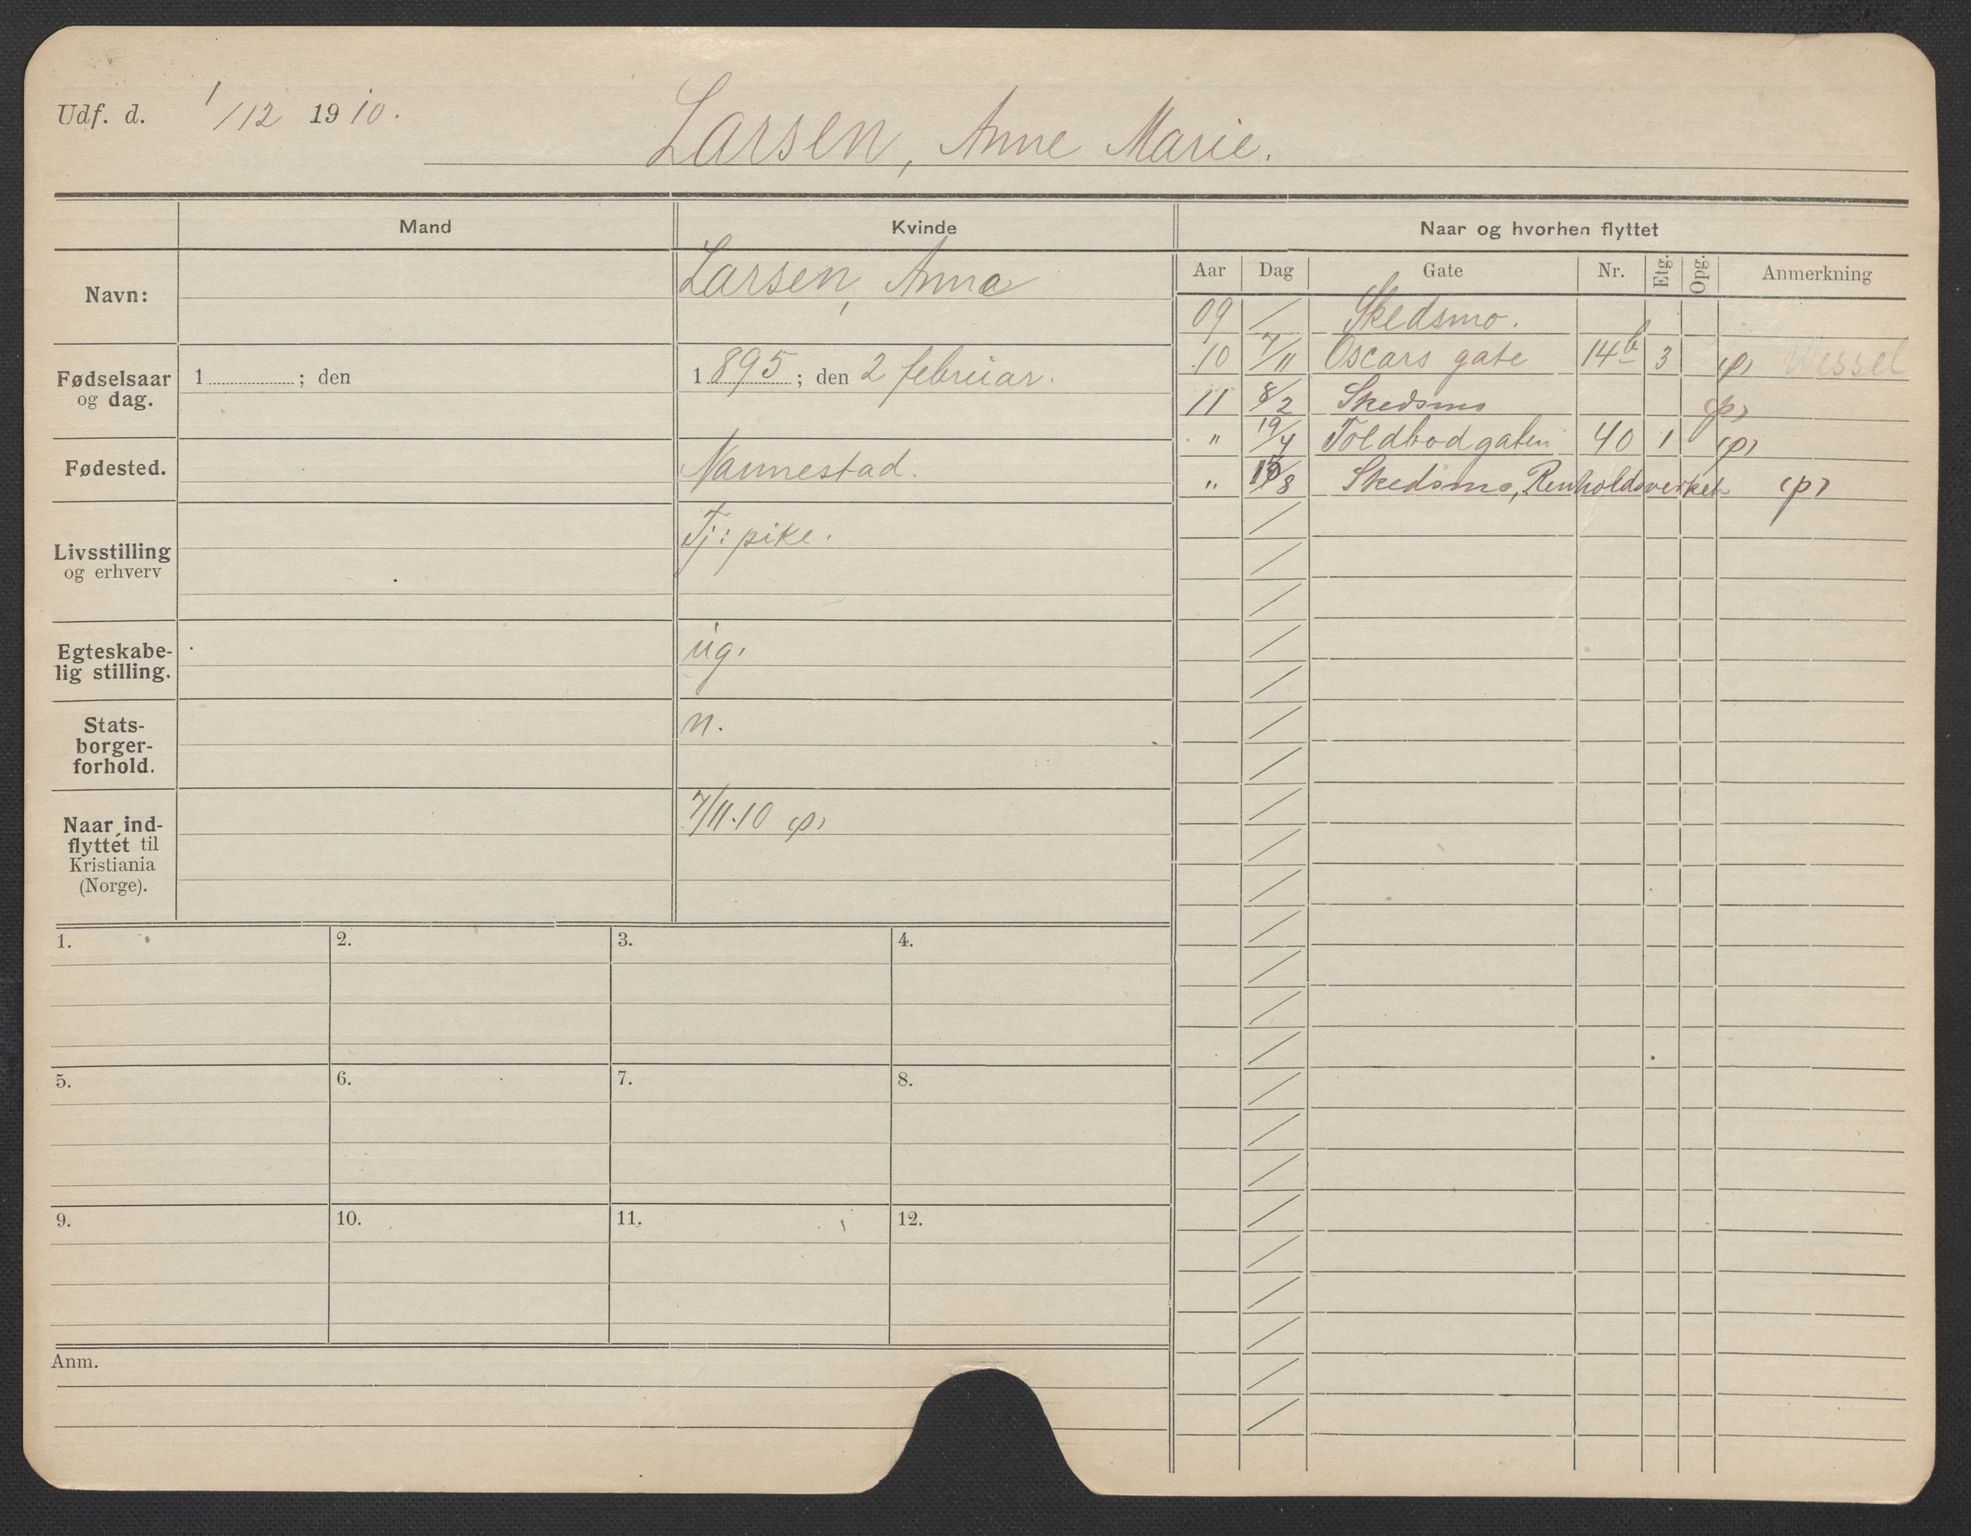 Udf. d. 1/12 1910.
Larsen, Anne Marie.
Mand Kvinde Naar og hvorhen flyttet
Aar Dag Gate Nr. Etg. Opg. Anmerkning
Navn: Larsen, Anna
Fødselsaar og dag. 1 ; den 1895; den 2 februar.
Fødested. Nannestad.
Livsstilling og erhverv Tj: pike.
Egteskabe-
lig stilling. ug.
Stats-
borger-
forhold. n.
Naar ind-
flyttet til
Kristiania
(Norge). 7/11.10 (p)
09 / Skedsmo.
10 7/11 Oscars gate 14b 3 (p) Wessel
11 8/2 Skedsmo (p)
" 19/4 Toldbodgaten 40 1 (p)
" /8 Skedsmo, Renholdsverket (p)
1. 2. 3. 4.
5. 6. 7. 8.
9. 10. 11. 12.
Anm.